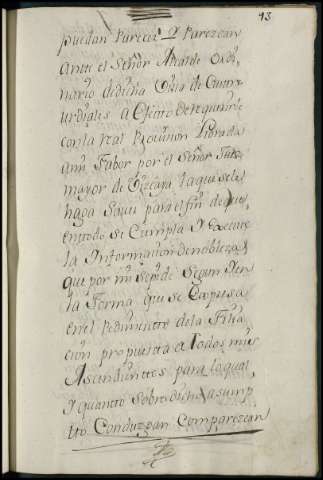 13
puedan Parecer Y Parezcan
Antte el Señor Alcalde Ordi-
nario de dicha Villa de
a Efecto de requerirle
con la real Provision Librada
a mi fabor por el Señor Juez
mayor de Vizcaya, la que se le
haga Saver para el fin de que,
en todo se Cumpla Y Execute
la Informazion de nobleza,
que por mi se pide Segun Y en
la Forma que se Expresa
en el Pedimentto de la Filia
cion propuesta a todos mis
Ascendienttes para lo qual,
Y quantto Sobre dicho asump
tto Conduzgan Comparezcan